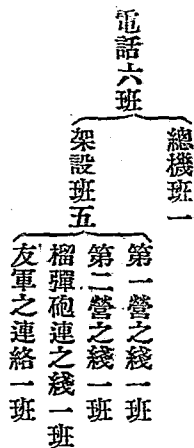 電話六班
總機班一
架設班五
第一營之綫一班
第二營之綫一班
榴彈砲連之綫一班
友軍之連絡一班